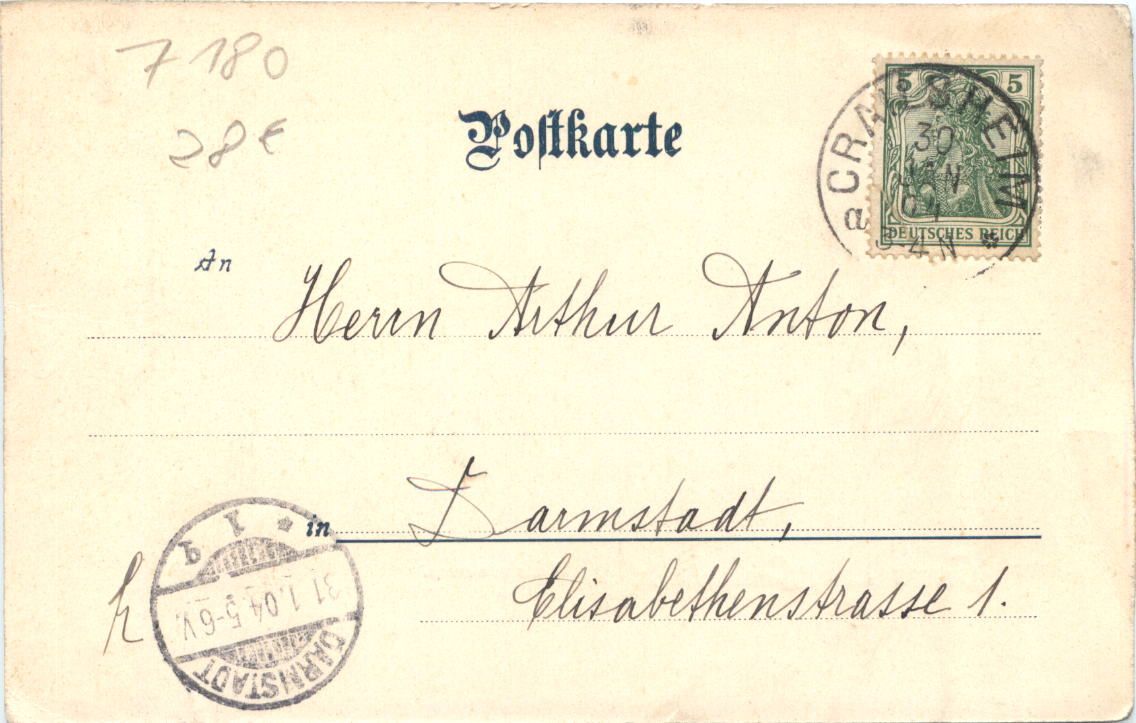 7 180
28€
Postkarte
5 5
DEUTSCHES REICH
CRAILSHEIM
30
JAN
04
3-4 N
a
An
Herrn Arthur Anton,
in Darmstadt,
Elisabethenstrasse 1.
DARMSTADT
31.1.04.5-6V.